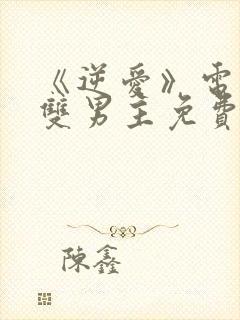 《逆愛》電
雙男主免費
陳鑫